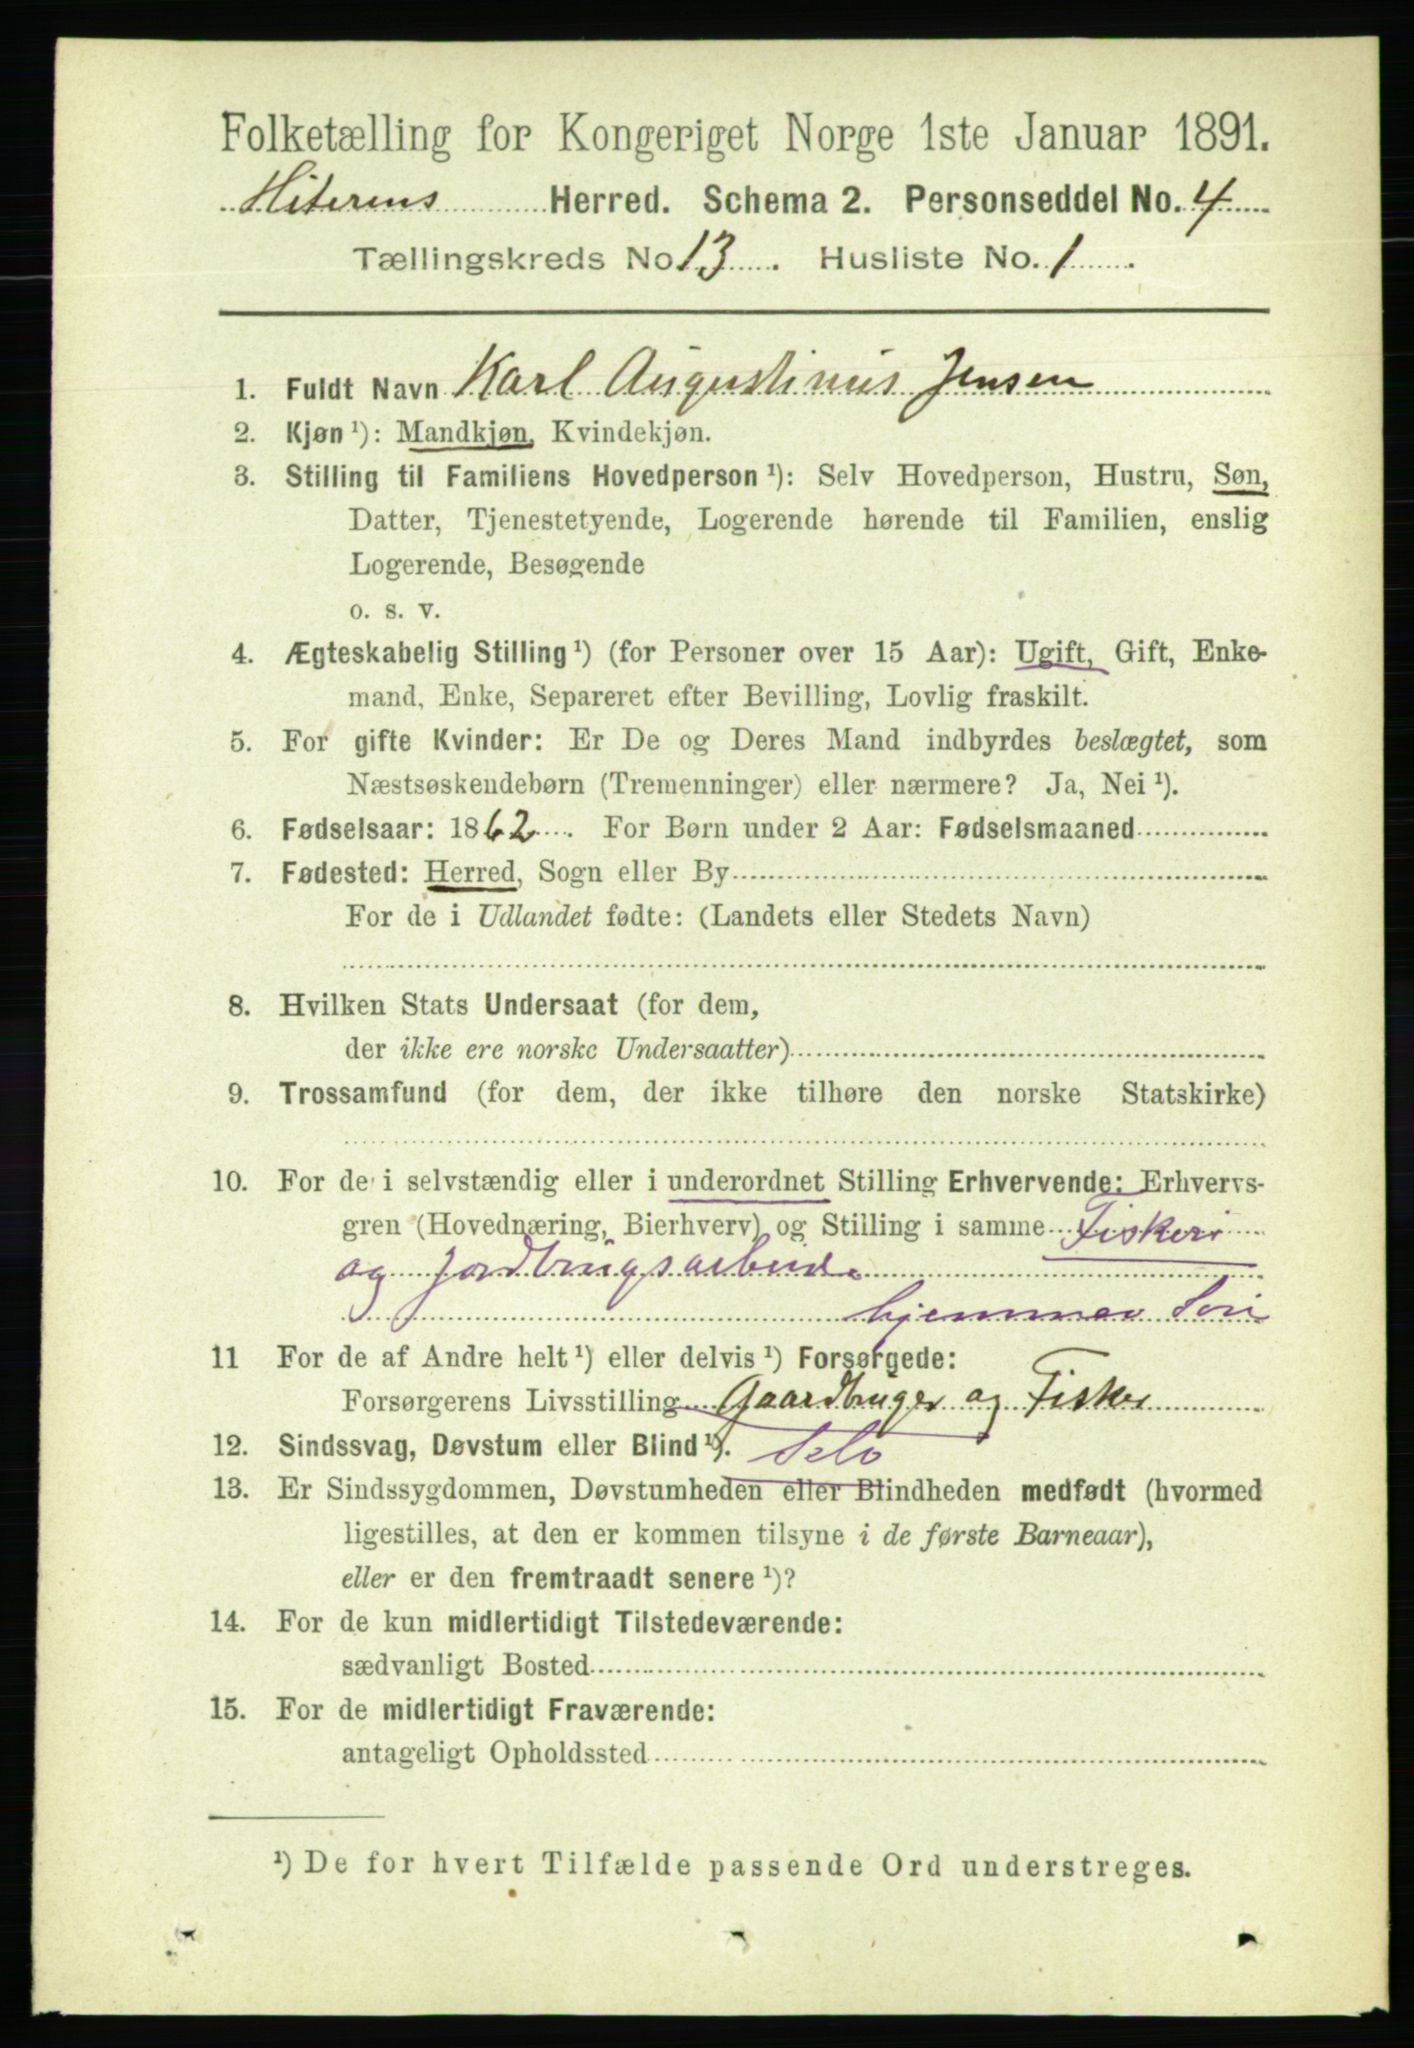 Folketælling for Kongeriget Norge 1ste Januar 1891.
Hiterens Herred. Schema 2. Personseddel No. 4
Tællingskreds No 13. Husliste No. 1.
1. Fuldt Navn Karl Augustinus Jensen
2. Kjøn ¹): Mandkjøn, Kvindekjøn.
3. Stilling til Familiens Hovedperson ¹): Selv Hovedperson, Hustru, Søn,
Datter, Tjenestetyende, Logerende hørende til Familien, enslig
Logerende, Besøgende
o. s. v.
4. Ægteskabelig Stilling ¹) (for Personer over 15 Aar): Ugift, Gift, Enke-
mand, Enke, Separeret efter Bevilling, Lovlig fraskilt.
5. For gifte Kvinder: Er De og Deres Mand indbyrdes beslægtet, som
Næstsøskendebørn (Tremenninger) eller nærmere? Ja, Nei ¹).
6. Fødselsaar: 1862. For Børn under 2 Aar: Fødselsmaaned
7. Fødested: Herred, Sogn eller By
For de i Udlandet fødte: (Landets eller Stedets Navn)
8. Hvilken Stats Undersaat (for dem,
der ikke ere norske Undersaatter)
9. Trossamfund (for dem, der ikke tilhøre den norske Statskirke)
10. For de i selvstændig eller i underordnet Stilling Erhvervende: Erhvervs-
gren (Hovednæring, Bierhverv) og Stilling i samme Fiskeri
og Jordbrugsarbeide
hjemmev Søn
11 For de af Andre helt ¹) eller delvis ¹) Forsørgede:
Forsørgerens Livsstilling Gaardbruger og Fisker
12. Sindssvag, Døvstum eller Blind ¹). Selv
13. Er Sindssygdommen, Døvstumheden eller Blindheden medfødt (hvormed
ligestilles, at den er kommen tilsyne i de første Barneaar),
eller er den fremtraadt senere ¹)?
14. For de kun midlertidigt Tilstedeværende:
sædvanligt Bosted
15. For de midlertidigt Fraværende:
antageligt Opholdssted
¹) De for hvert Tilfælde passende Ord understreges.